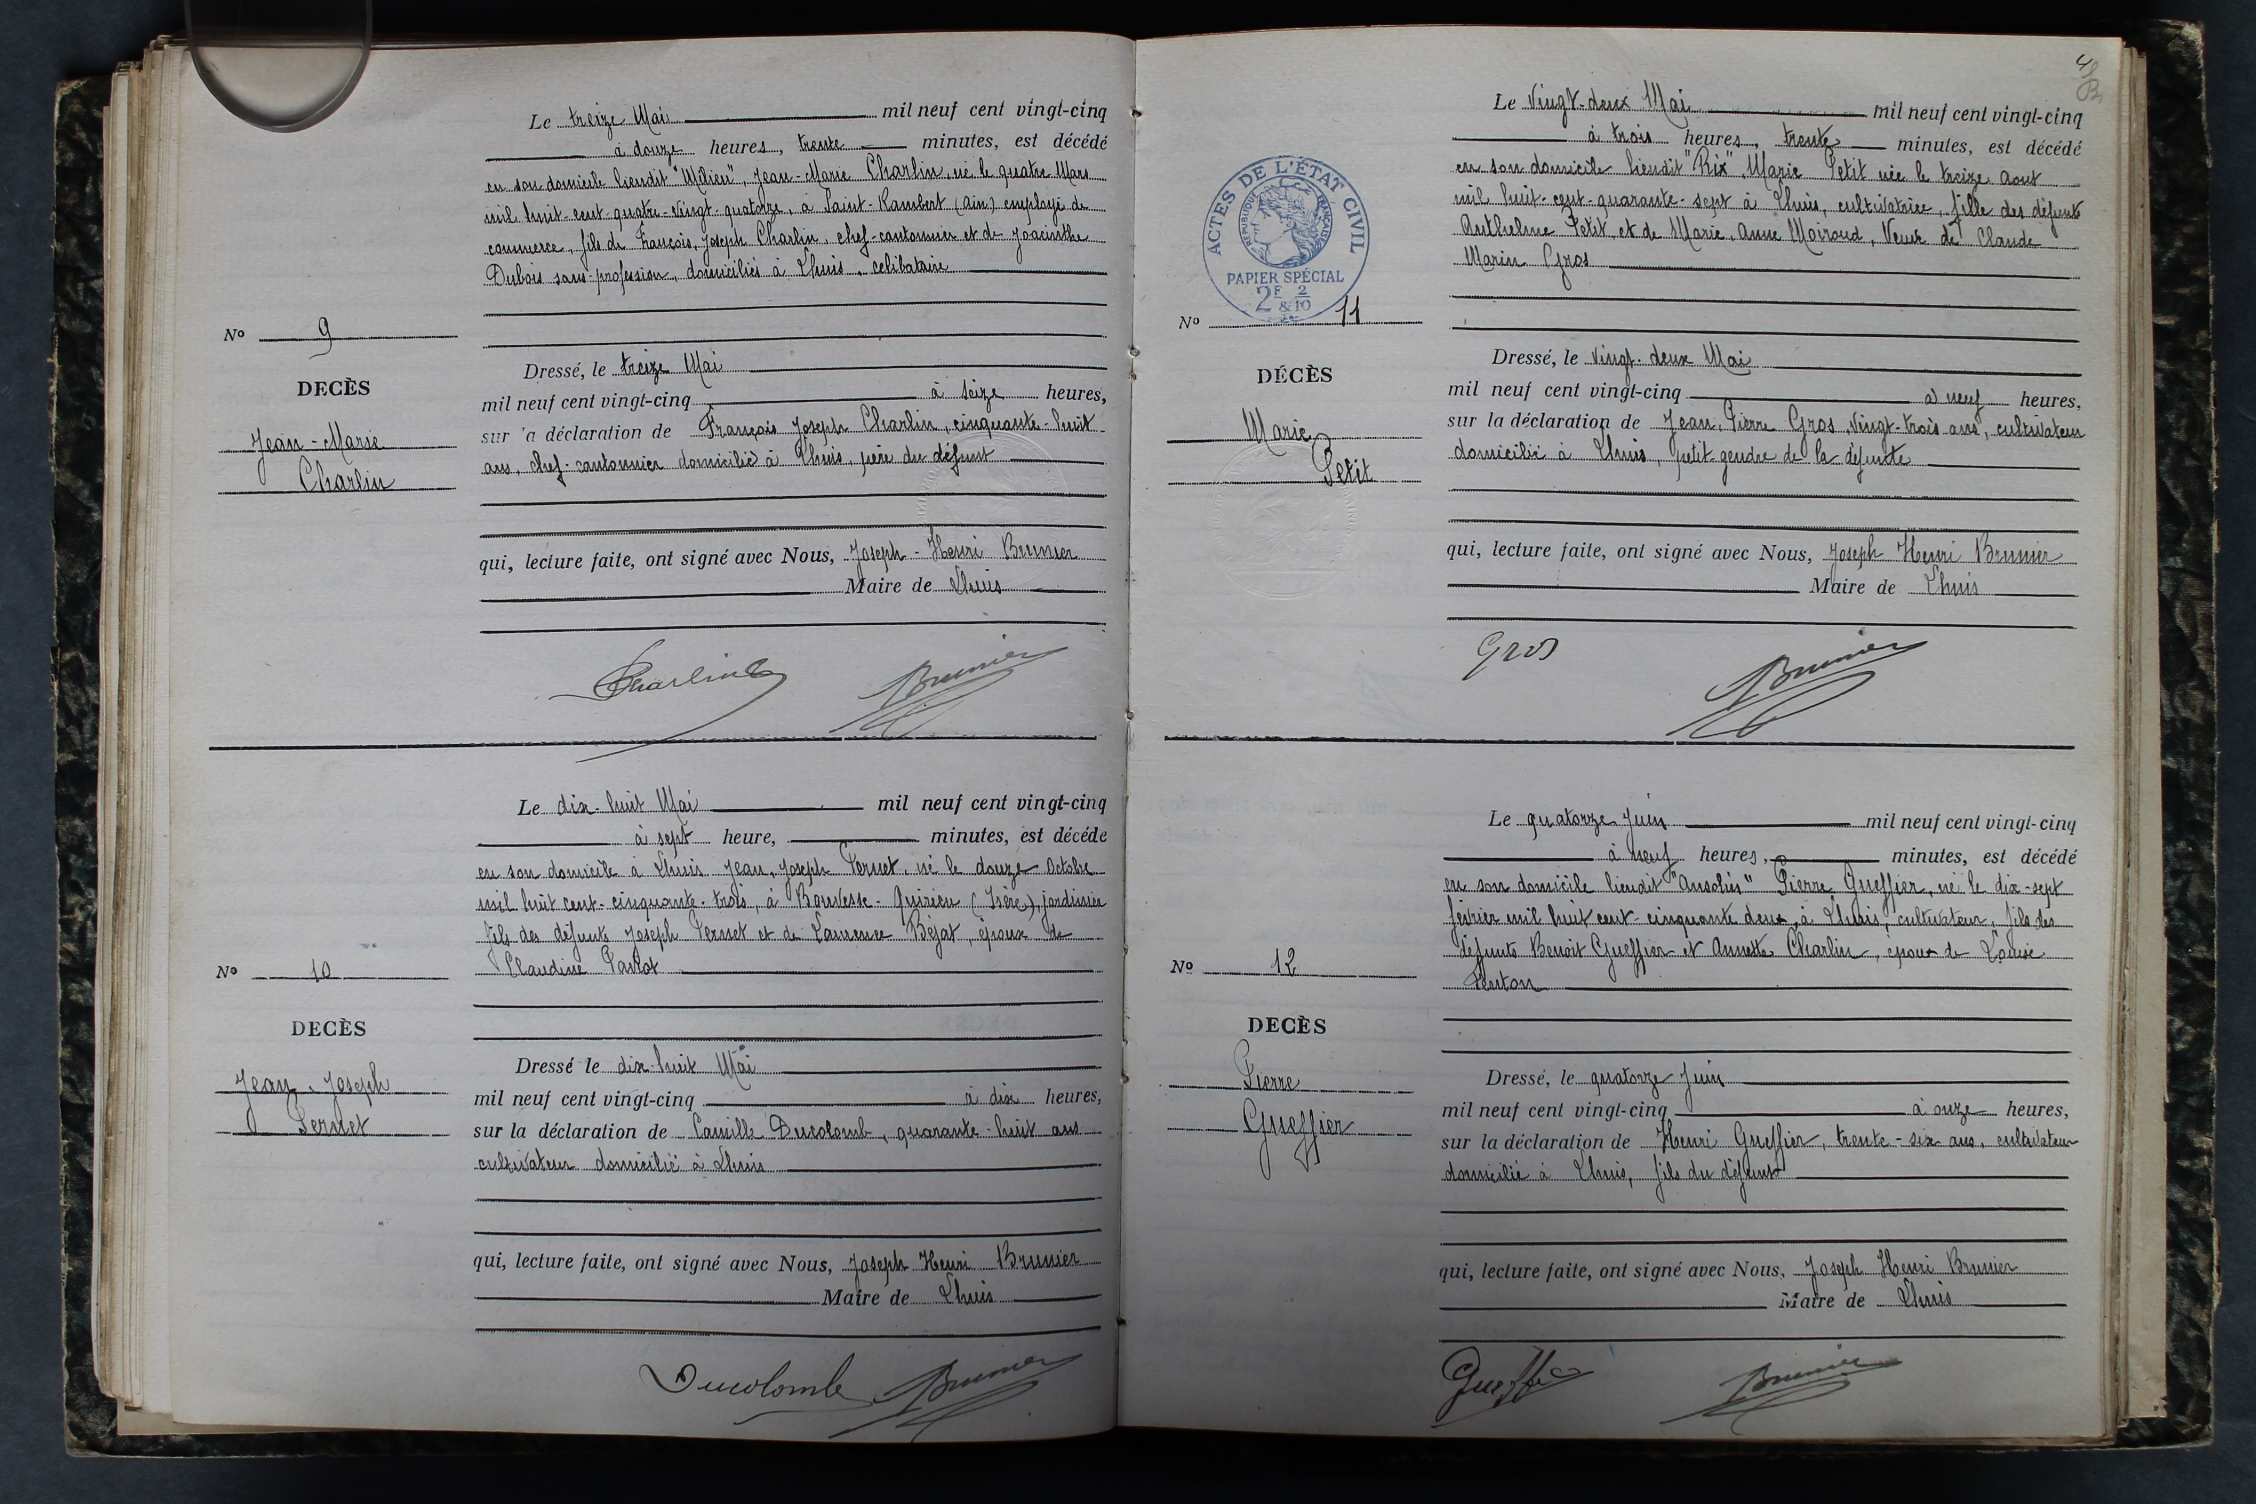 Le treize Mai mil neuf cent vingt-cinq
à douze heures, trente minutes, est décédé
en son domicile lieudit "Milieu", Jean-Marie Charlin, né le quatre Mars
mil huit-cent-quatre-vingt-quatorze, à Saint-Rambert (Ain) employé de
commerce, fils de François, Joseph Charlin, chef-cantonnier et de Joacinthe
Dubois sans profession, domiciliés à Lhuis, celibataire
No 9
DECÈS
Jean-Marie
Charlin
Dressé, le treize Mai
mil neuf cent vingt-cinq à seize heures,
sur la déclaration de François Joseph Charlin, cinquante-huit
ans, chef-cantonnier domicilié à Lhuis, père du défunt
qui, lecture faite, ont signé avec Nous, Joseph-Henri Brunier
Maire de Lhuis
Charlin Brunier
Le dix-huit Mai mil neuf cent vingt-cinq
à sept heure, minutes, est décédé
en son domicile à Lhuis Jean, Joseph Pernet, né le douze Octobre
mil huit cent-cinquante-trois, à Bouvesse-Quirieu (Isère), jardinier
fils des défunts Joseph Pernet et de Laurence Béjat, époux de
Claudine
No 10
DECÈS
Jean, Joseph
Pernet
Dressé le dix-huit Mai
mil neuf cent vingt-cinq à dix heures,
sur la déclaration de Camille Ducolomb, quarante-huit ans
cultivateur domicilié à Lhuis
qui, lecture faite, ont signé avec Nous, Joseph Henri Brunier
Maire de Lhuis
Ducolomb Brunier
Le Vingt-deux Mai mil neuf cent vingt-cinq
à trois heures, trente minutes, est décédé
en son domicile lieudit "Rix", Marie Petit née le treize Aout
mil huit-cent-quarante-sept à Lhuis, cultivatrice, fille des défunts
Anthelme Petit et de Marie, Anne Moiroud, Veuve de Claude
Marin Gros
ACTES DE L'ÉTAT CIVIL
RÉPUBLIQUE FRANÇAISE
PAPIER SPÉCIAL
2F & 2/10
No 11
DÉCÈS
Marie
Petit
Dressé, le vingt-deux Mai
mil neuf cent vingt-cinq à neuf heures,
sur la déclaration de Jean, Pierre Gros, vingt-trois ans, cultivateur
domicilié à Lhuis, petit-gendre de la défunte
qui, lecture faite, ont signé avec Nous, Joseph Henri Brunier
Maire de Lhuis
Gros Brunier
Le quatorze Juin mil neuf cent vingt-cinq
à neuf heures, minutes, est décédé
en son domicile lieudit "Ansolin" Pierre Gueffier, né le dix-sept
février mil huit cent-cinquante deux, à Lhuis, cultivateur, fils des
défunts Benoit Gueffier et Annette Charlin, époux de Louise
No 12
DECÈS
Pierre
Gueffier
Dressé, le quatorze Juin
mil neuf cent vingt-cinq à onze heures,
sur la déclaration de Henri Gueffier, trente-six ans, cultivateur
domicilié à Lhuis, fils du défunt
qui, lecture faite, ont signé avec Nous, Joseph Henri Brunier
Maire de Lhuis
Gueffier Brunier